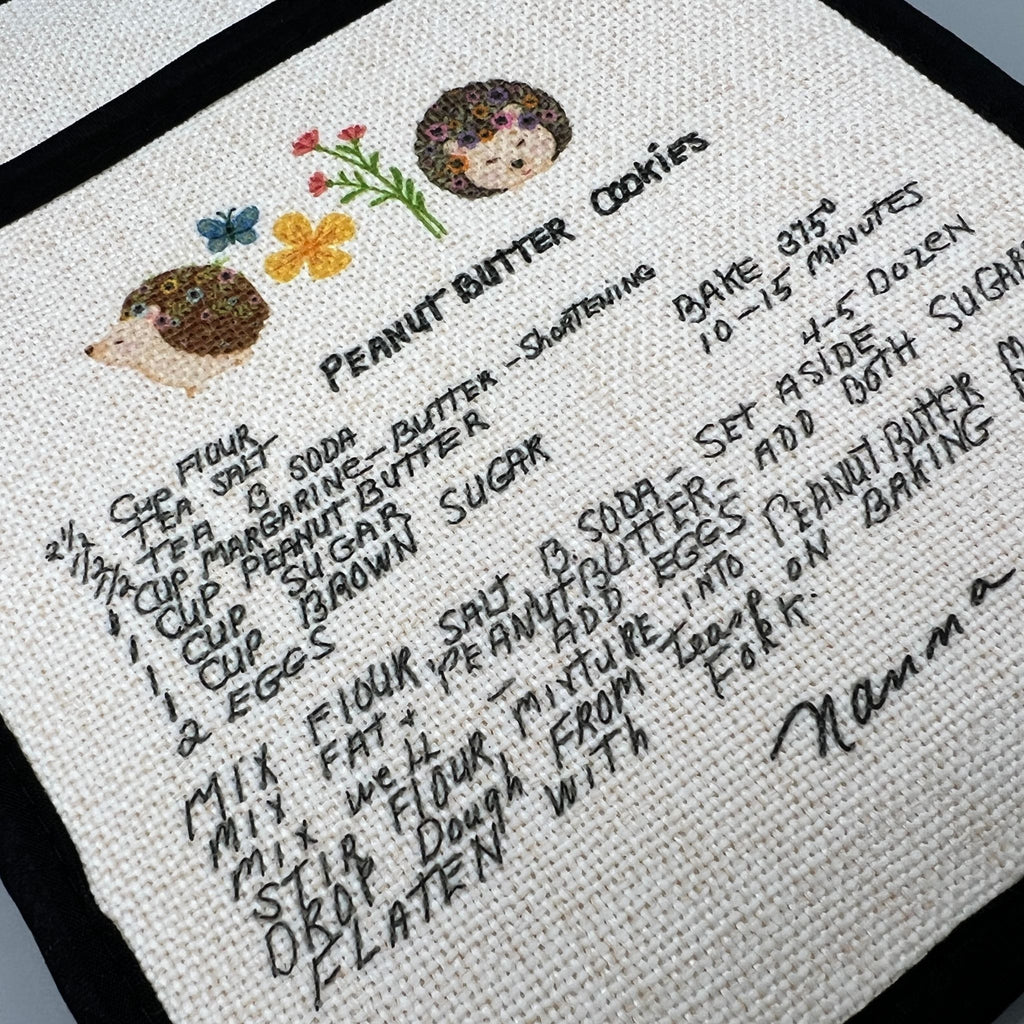 PEANUT BUTTER COOKIES
BAKE 375°
10-15 MINUTES
4-5 DOZEN
2 1/2 CUP FLOUR
1/2 TEA SALT
1/2 TEA B SODA
1 CUP MARGARINE - BUTTER - ShORTENING
1 CUP PEANUT BUTTER
1 CUP SUGAR
1 CUP BROWN SUGAR
2 EGGS
MIX FLOUR SALT B. SODA - SET ASIDE
MIX FAT + PEANUT BUTTER - ADD BOTH SUGAR
MIX well - ADD EGGS
STIR FLOUR MIXTURE INTO PEANUT BUTTER
DROP Dough FROM teasp ON BAKING
FLATEN WITH FORK.
Nanna